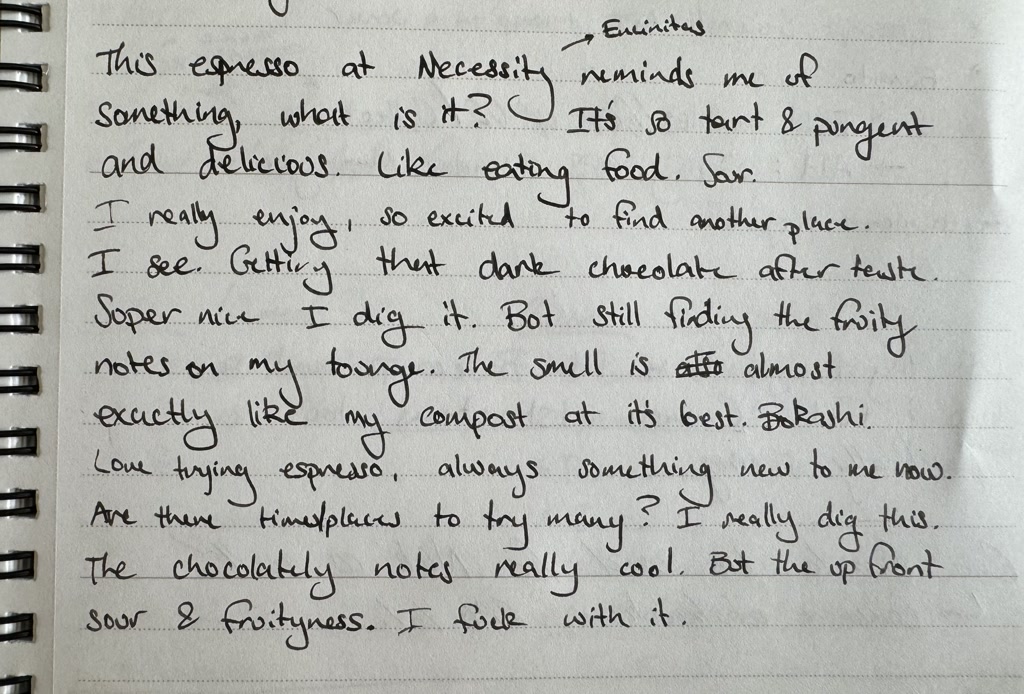 → Encinitas
This espresso at Necessity reminds me of
Something, what is it? It's so tart & pungent
and delicious. Like eating food. Sour.
I really enjoy, so excited to find another place.
I see. Getting that dark chocolate after taste.
Super nice I dig it. But still finding the fruity
notes on my tounge. The smell is almost
exactly like my compost at it's best. Bokashi.
Love trying espresso, always something new to me now.
Are there times/places to try many? I really dig this.
The chocolately notes really cool. But the up front
sour & fruityness. I fuck with it.